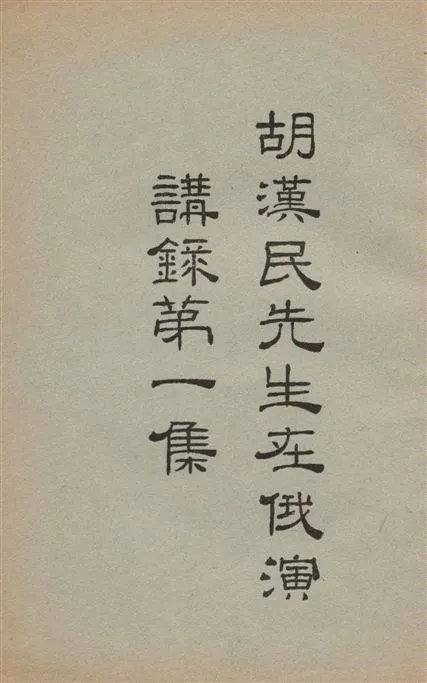 胡漢民先生在俄演
講錄第一集